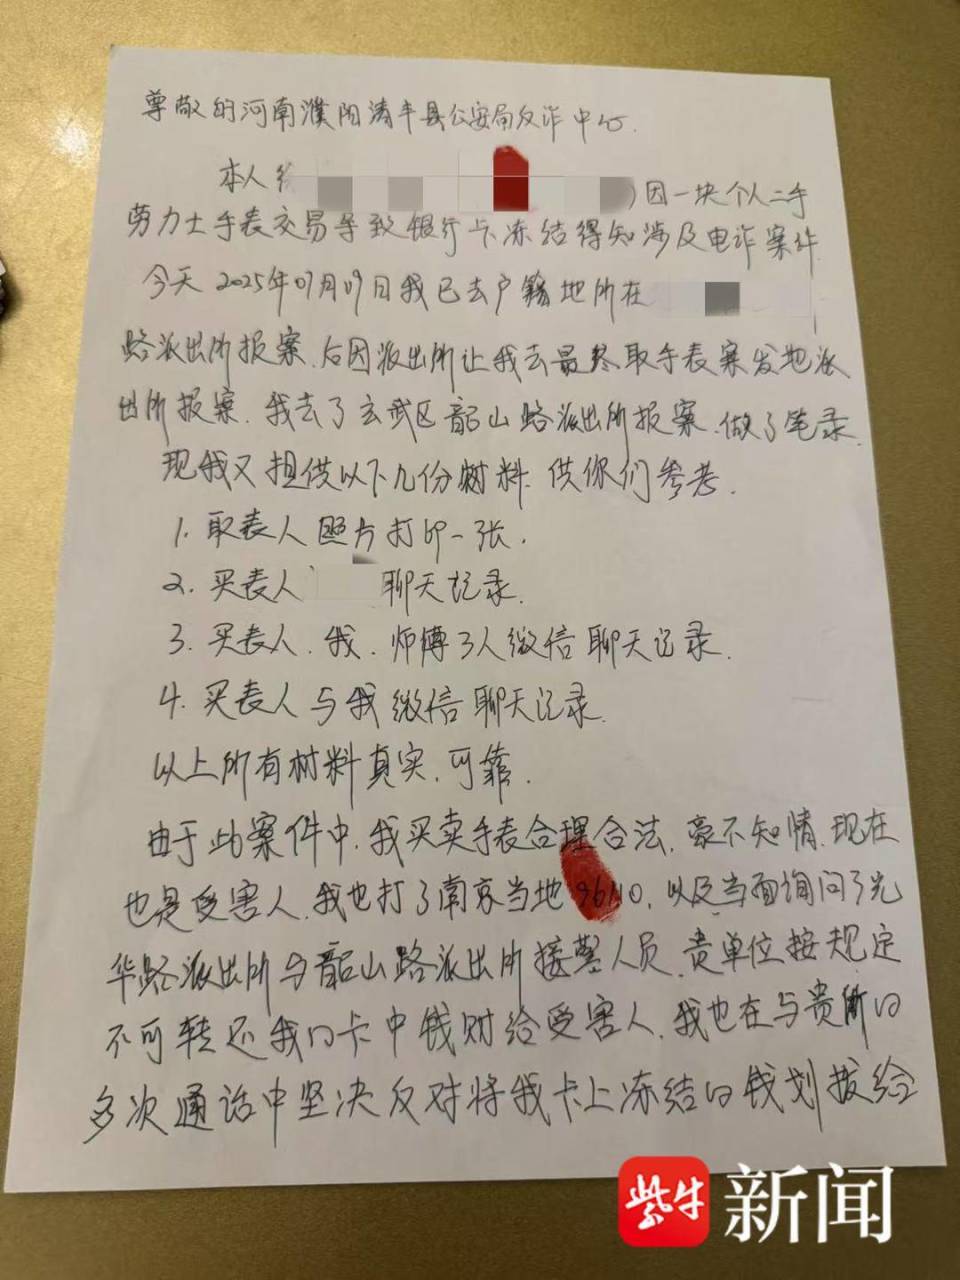 尊敬的河南濮阳清丰县公安局反诈中心.
本人 因一块个人二手
劳力士手表交易导致银行卡冻结得知涉及电诈案件
今天2025年07月09日我已去户籍地所在
路派出所报案.后因派出所让我去最终取手表案发地派
出所报案.我去了玄武区韶山路派出所报案.做了笔录.
现我又提供以下几份材料.供你们参考.
1.取表人照片打印一张.
2.买表人 聊天记录.
3.买表人.我.师傅3人微信聊天记录.
4.买表人与我微信聊天记录.
以上所有材料真实.可靠.
由于此案件中.我买卖手表合理合法.豪不知情.现在
也是受害人.我也打了南京当地96110.以及当面询问了光
华路派出所与韶山路派出所接警人员.贵单位按规定
不可转还我的卡中钱财给受害人.我也在与贵衙的
多次通话中坚决反对将我卡上冻结的钱划拨给
紫牛新闻